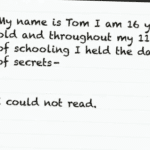 My name is Tom I am 16 y
old and throughout my 11
of schooling I held the da
of secrets-
I could not read.